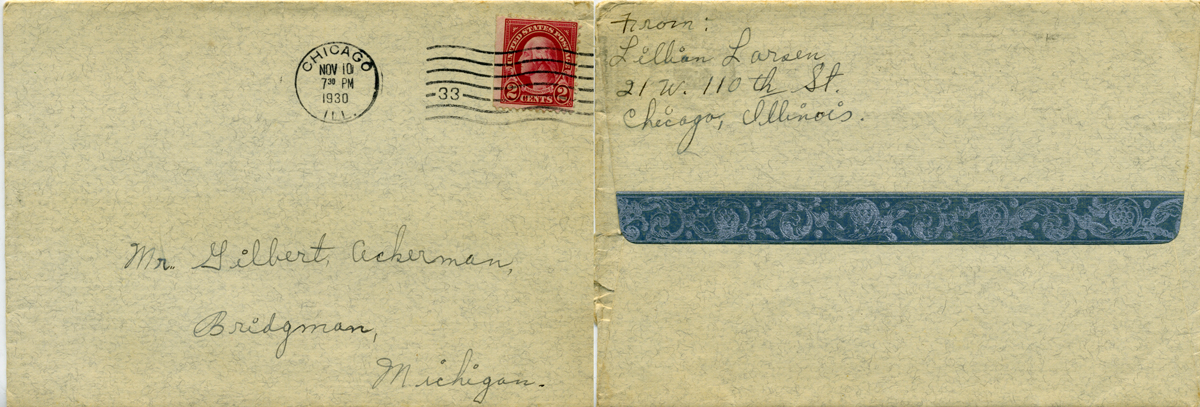 CHICAGO
NOV 10
7 30 PM
1930
ILL.
33
UNITED STATES POSTAGE
2 CENTS 2
Mr. Gilbert, Ackerman,
Bridgman,
Michigan.
From:
Lillian Larsen
21 W. 110th St.
Chicago, Illinois.